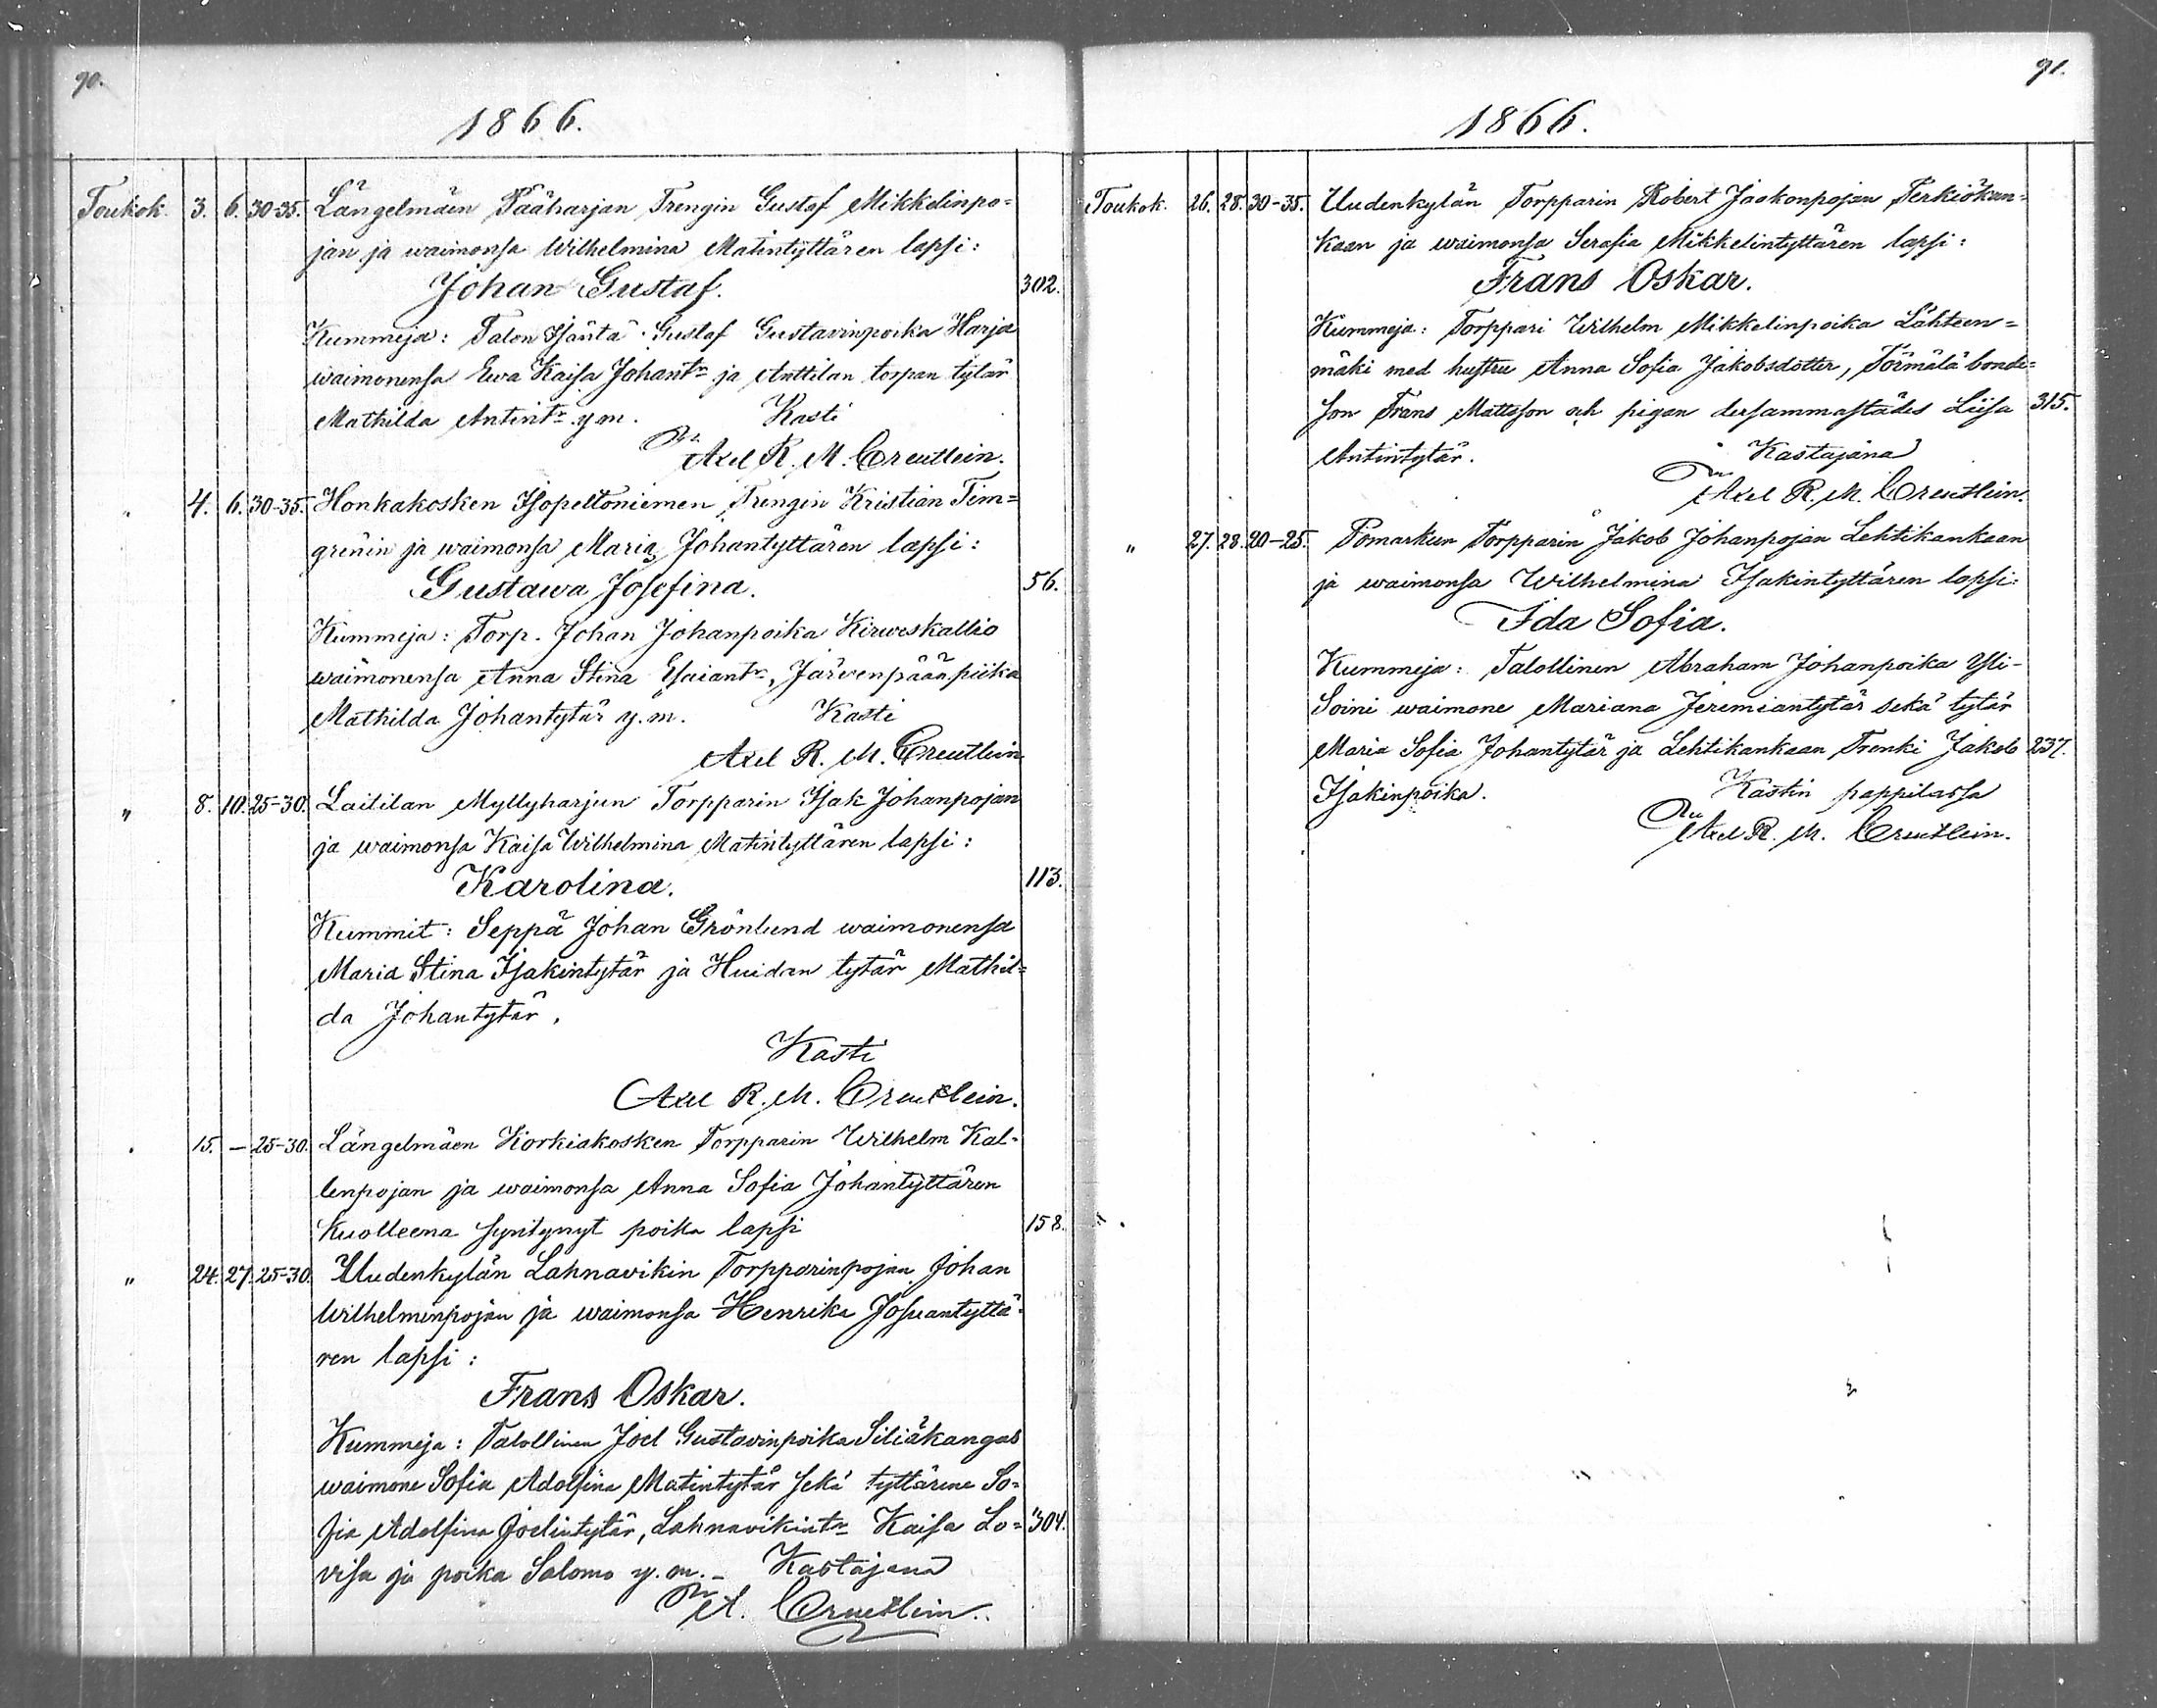 90.
1866.
Toukok. 3. 6. 30-35. Längelmäen Pääharjan Trengin Gustaf Mikkelinpo=
jan ja waimonsa Wilhelmina Matintyttären lapsi:
Johan Gustaf. 302.
Kummeja: Talon Isäntä Gustaf Gustavinpoika Harja
waimonensa Ewa Kaisa Johantr ja Anttilan torpan tytär
Mathilda Antintr y.m. Kasti
Axel R. M. Creutlein.
" 4. 6. 30-35. Honkakosken Isopeltoniemen Trengin Kristian Tim=
grenin ja waimonsa Maria Johantyttären lapsi:
Gustawa Josefina. 56.
Kummeja: Torp. Johan Johanpoika Kirweskallio
waimonensa Anna Stina Esaiantr, Järwenpään piika
Mathilda Johantytär y.m. Kasti
Axel R. M. Creutlein
" 8. 10. 25-30. Laitilan Myllyharjun Torpparin Isak Johanpojan
ja waimonsa Kaisa Wilhelmina Matintyttären lapsi:
Karolina. 113.
Kummit: Seppä Johan Grönlund waimonensa
Maria Stina Isakintytär ja Huidan tytär Mathil=
da Johantytär.
Kasti
Axel R. M. Creutlein.
" 15. — 25-30. Längelmäen Korkiakosken Torpparin Wilhelm Kal=
lenpojan ja waimonsa Anna Sofia Johantyttären
Kuolleena syntynyt poika lapsi 158.
" 24. 27. 25-30. Uudenkylän Lahnavikin Torpparinpojan Johan
Wilhelminpojan ja waimonsa Henrika Josuantyttä=
ren lapsi:
Frans Oskar.
Kummeja: Talollinen Joel Gustavinpoika Siliäkangas
waimone Sofia Adolfina Matintytär sekä tyttärene So=
fia Adolfina Joelintytär, Lahnavikintr Kaisa Lo= 304.
visa ja poika Salomo y.m. – Kastajana
A. Creutlein.
91.
1866.
Toukok. 26. 28. 30-35. Uudenkylän Torpparin Robert Jaakonpojan Terkiökan=
kaan ja waimonsa Serafia Mikkelintyttären lapsi:
Frans Oskar.
Kummeja: Torppari Wilhelm Mikkelinpoika Lähteen=
mäki med hustru Anna Sofia Jakobsdotter, Törmälä bonde=
son Frans Mattsson och pigan dersammastädes Liisa 315.
Antintytär. Kastajana
Axel R. M. Creutlein.
" 27. 28. 20-25. Pomarkun Torpparin Jakob Johanpojan Lehtikankaan
ja waimonsa Wilhelmina Isakintyttären lapsi:
Ida Sofia.
Kummeja: Talollinen Abraham Johanpoika Yli-
Soini waimone Mariana Jeremiantytär sekä tytär
Maria Sofia Johantytär ja Lehtikankaan Trenki Jakob 237.
Isakinpoika. Kastin pappilassa
Axel R. M. Creutlein.